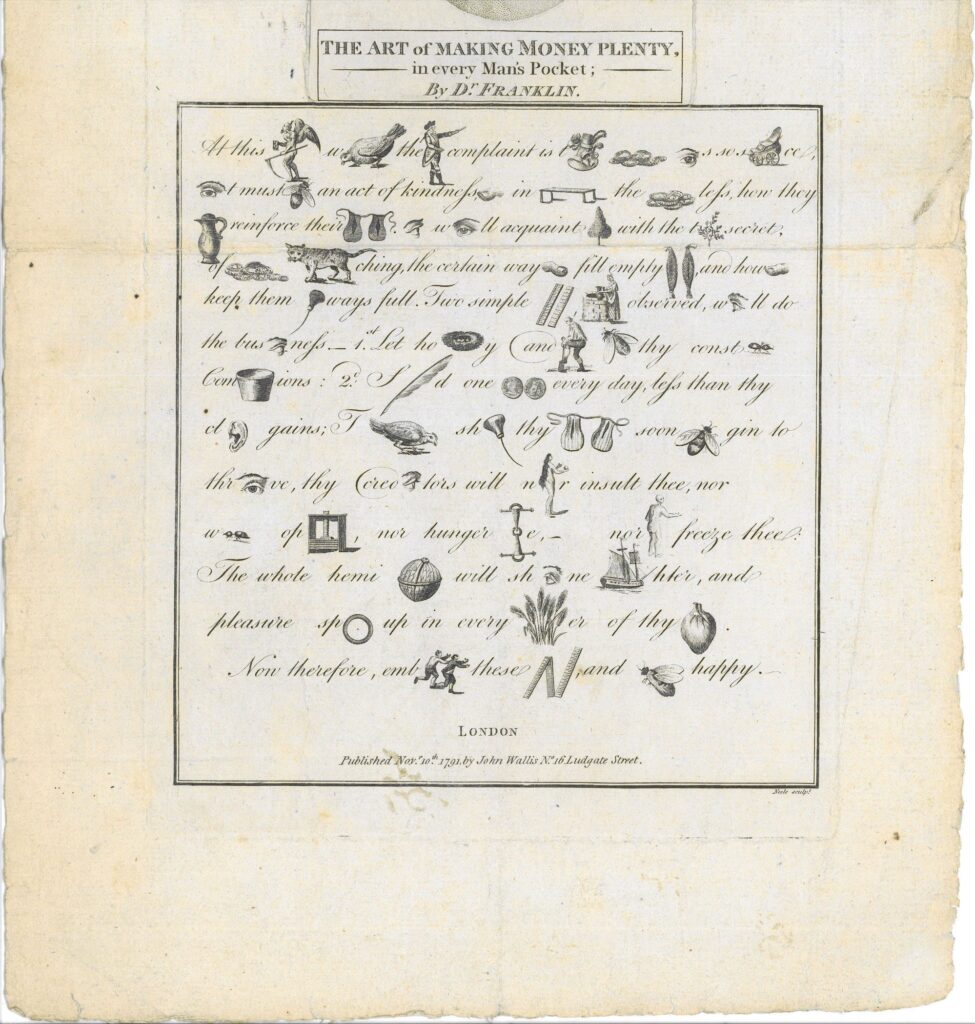 THE ART of MAKING MONEY PLENTY,
in every Man's Pocket;
By Dr. FRANKLIN.
At this w the complaint is s so s ce,
t must an act of kindness in the less, how they
reinforce their . w ll acquaint with the t secret,
of ching, the certain way fill empty and how
keep them ways full. Two simple observed, w ll do
the bus ness. — 1st. Let ho y and thy const
Com ions: 2d. S d one every day, less than thy
cl gains; T sh thy soon gin to
thr ve, thy cred tors will n r insult thee, nor
w op , nor hunger e, — nor freeze thee:
The whole hemi will sh ne hter, and
pleasure sp up in every er of thy .
Now therefore, emb these , and happy.
LONDON
Published Novr. 10th. 1791, by John Wallis No. 16 Ludgate Street.
Neele sculpt.